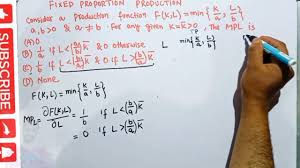 FIXED PROPORTION PRODUCTION
Consider a Production function F(K,L) = min{K/a, L/b}
a,b>0 & a≠b. For any given K=K̄>0, The MPL is
(A) 0
(B) 1/b if L<(b/a)K̄ & 0 otherwise
(C) 1/b if L<(b/a)K̄ & 0 if L>(b/a)K̄
(D) None
L
TP
min{K/a, L/b}
F(K,L) = min{K/a, L/b}
MPL = ∂F(K,L)/∂L = 1/b if L<(b/a)K̄
= 0 if L>(b/a)K̄
SUBSCRIBE